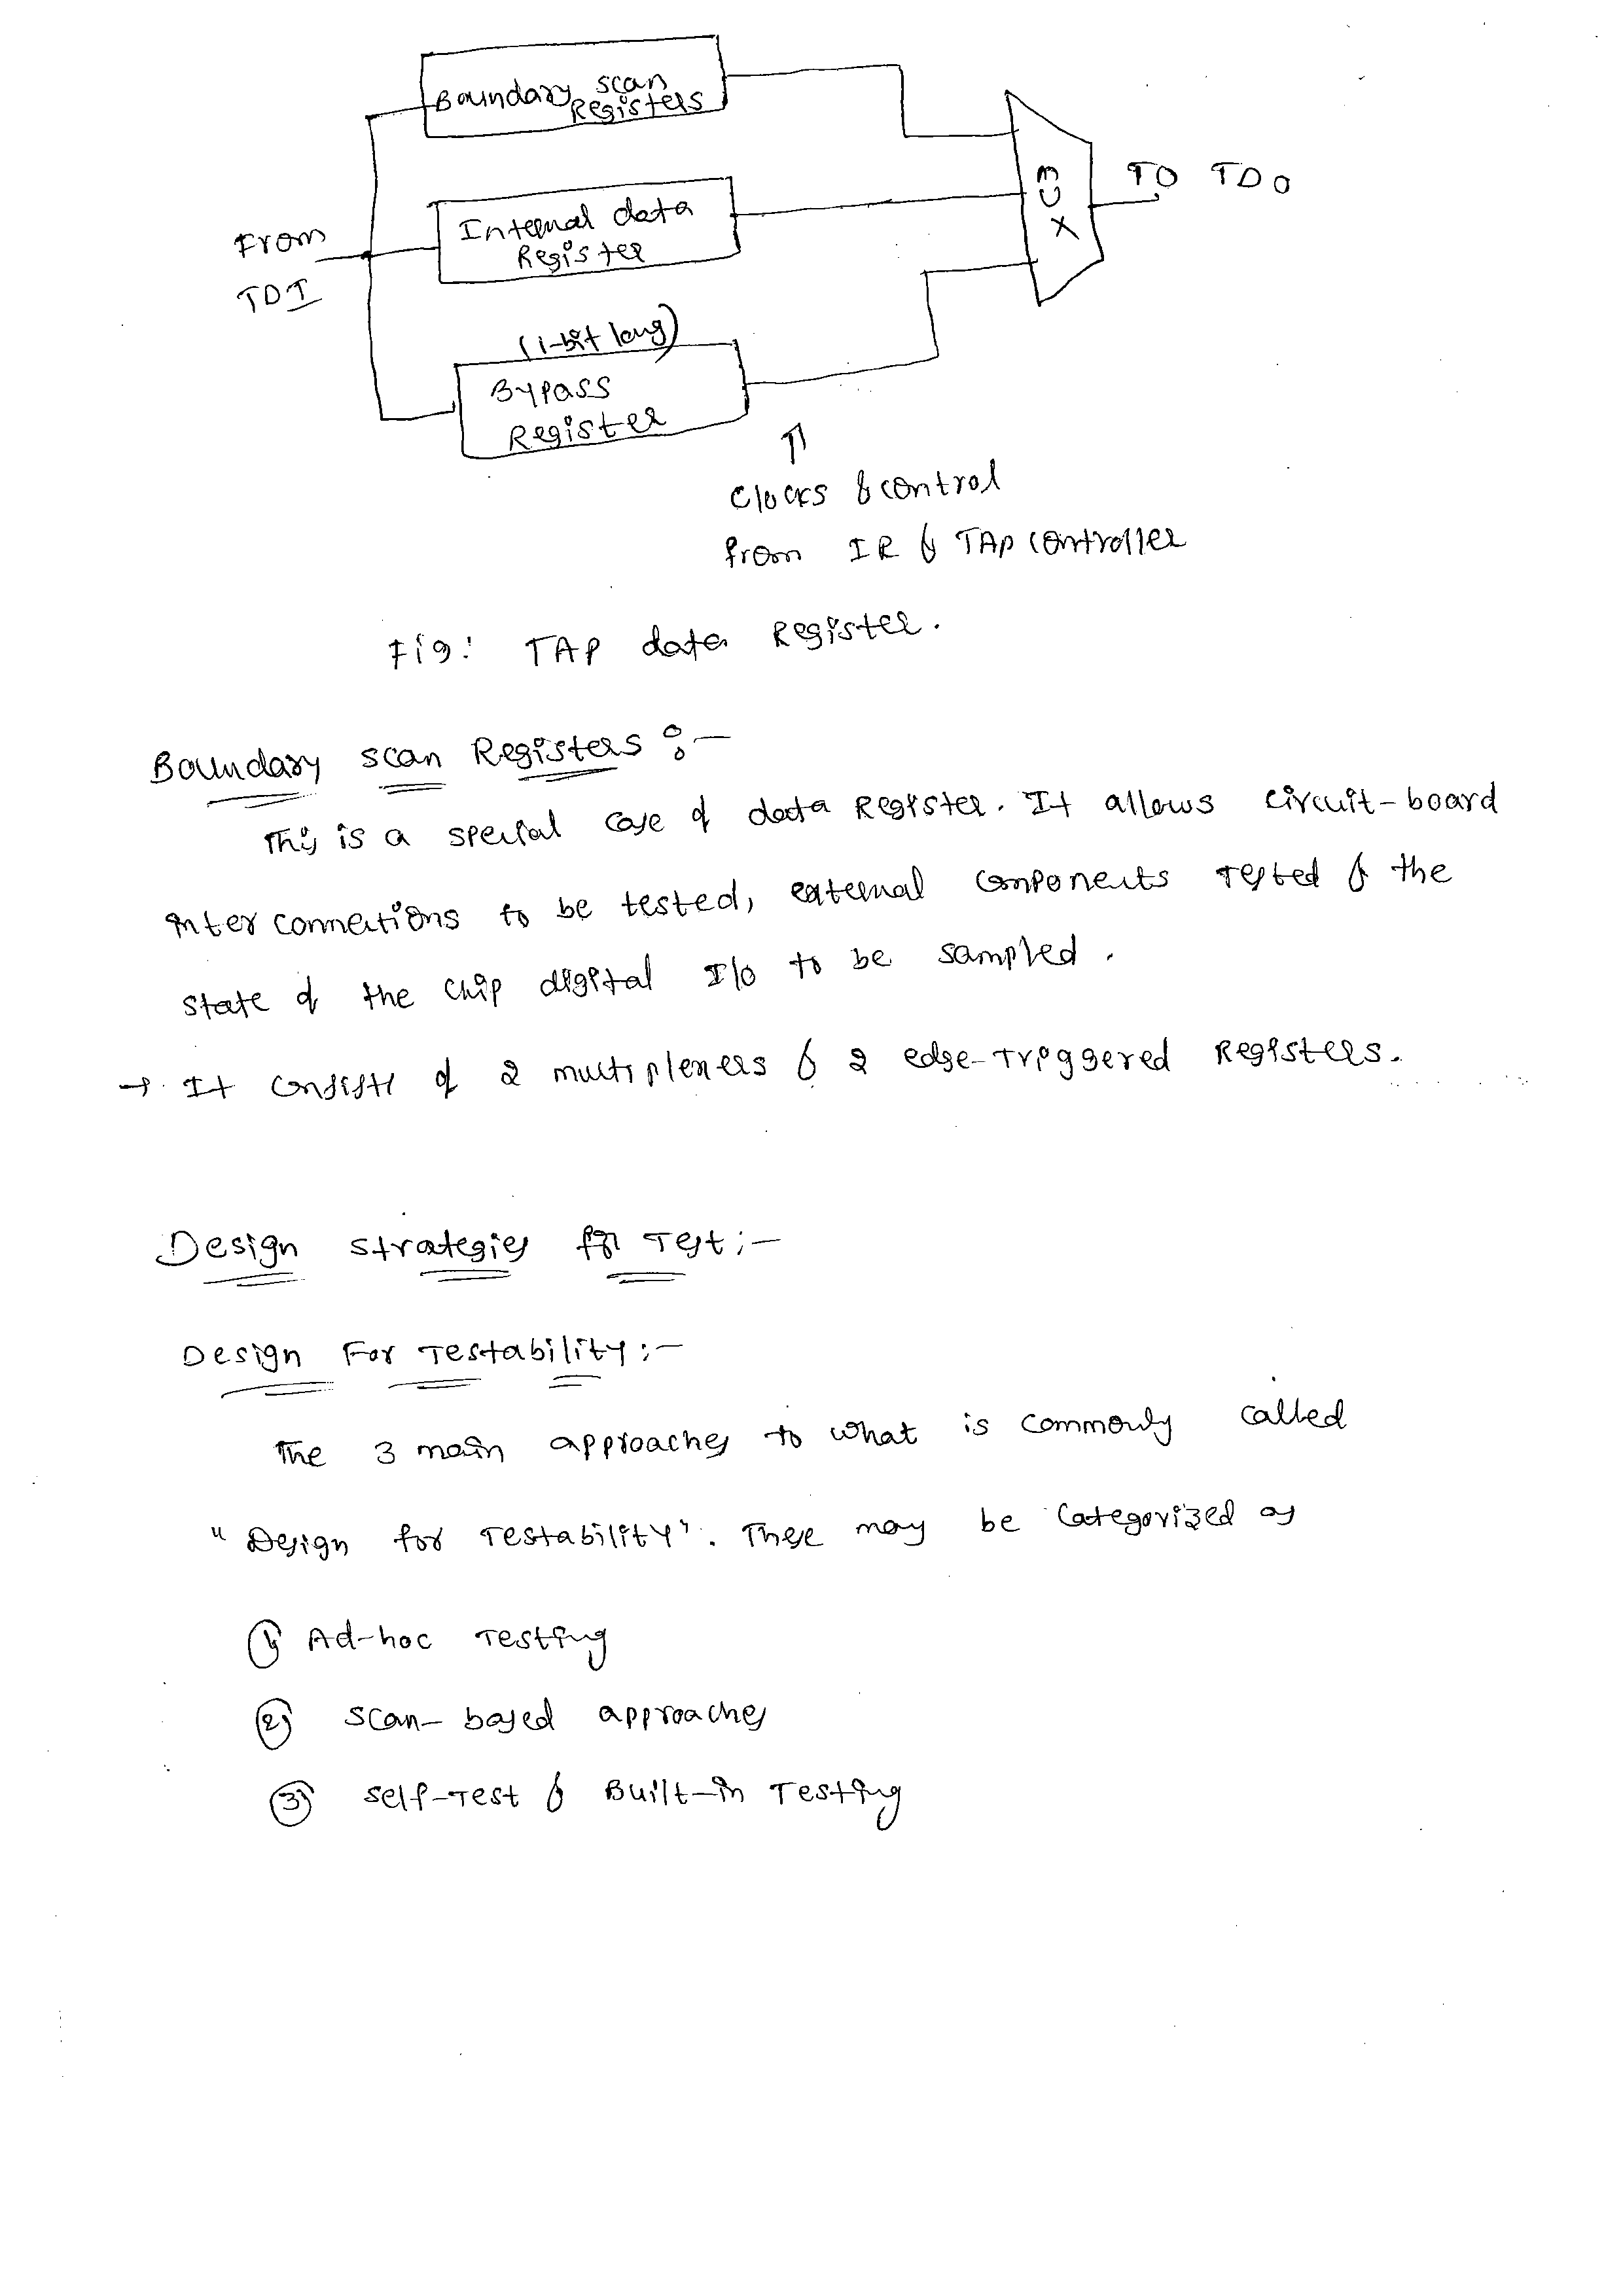 Boundary scan
Registers
Internal data
Register
From
TDI
MUX
TO TDO
(1-bit long)
Bypass
Register
Clocks & control
from IR & TAP controller
Fig: TAP data Register.
Boundary scan Registers :-
This is a special case of data Register. It allows circuit-board
inter connections to be tested, external components tested & the
state of the chip digital I/o to be sampled.
→ It consists of 2 multiplexers & 2 edge-triggered Registers.
Design strategies for Test :-
Design For Testability :-
The 3 main approaches to what is commonly called
"Design for Testability". These may be categorized as
1) Ad-hoc Testing
2) scan-based approaches
3) self-Test & Built-in Testing